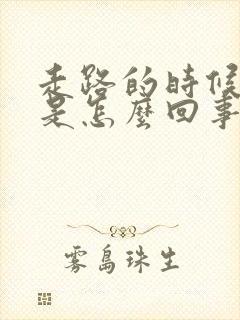 走路的時候
是怎麼回事
雾島珠生